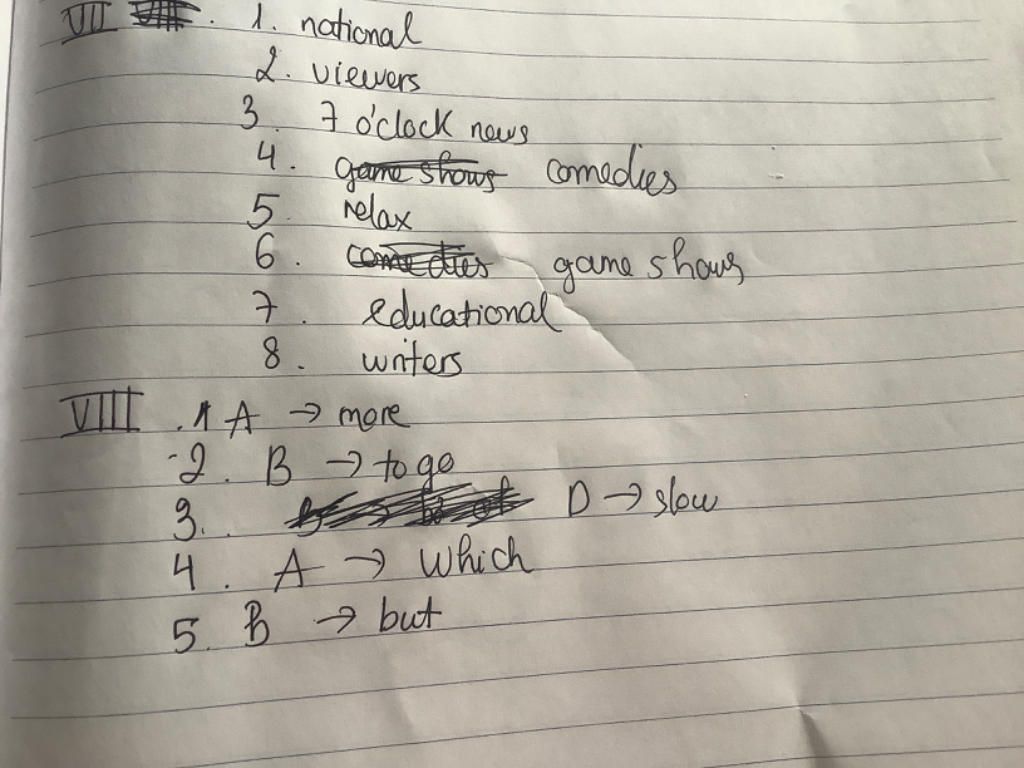 VII VIII. 1. national
2. viewers
3. 7 o'clock news
4. game shows comedies
5. relax
6. comedies game shows
7. educational
8. writers
VIII .1 A → more
2. B → to go
3. D → slow
4. A → Which
5. B → but